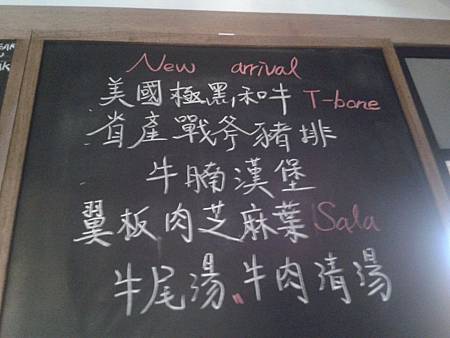 New arrival
美國極黑和牛 T-bone
省產戰斧豬排
牛腩漢堡
翼板肉芝麻葉 Sala
牛尾湯、牛肉清湯